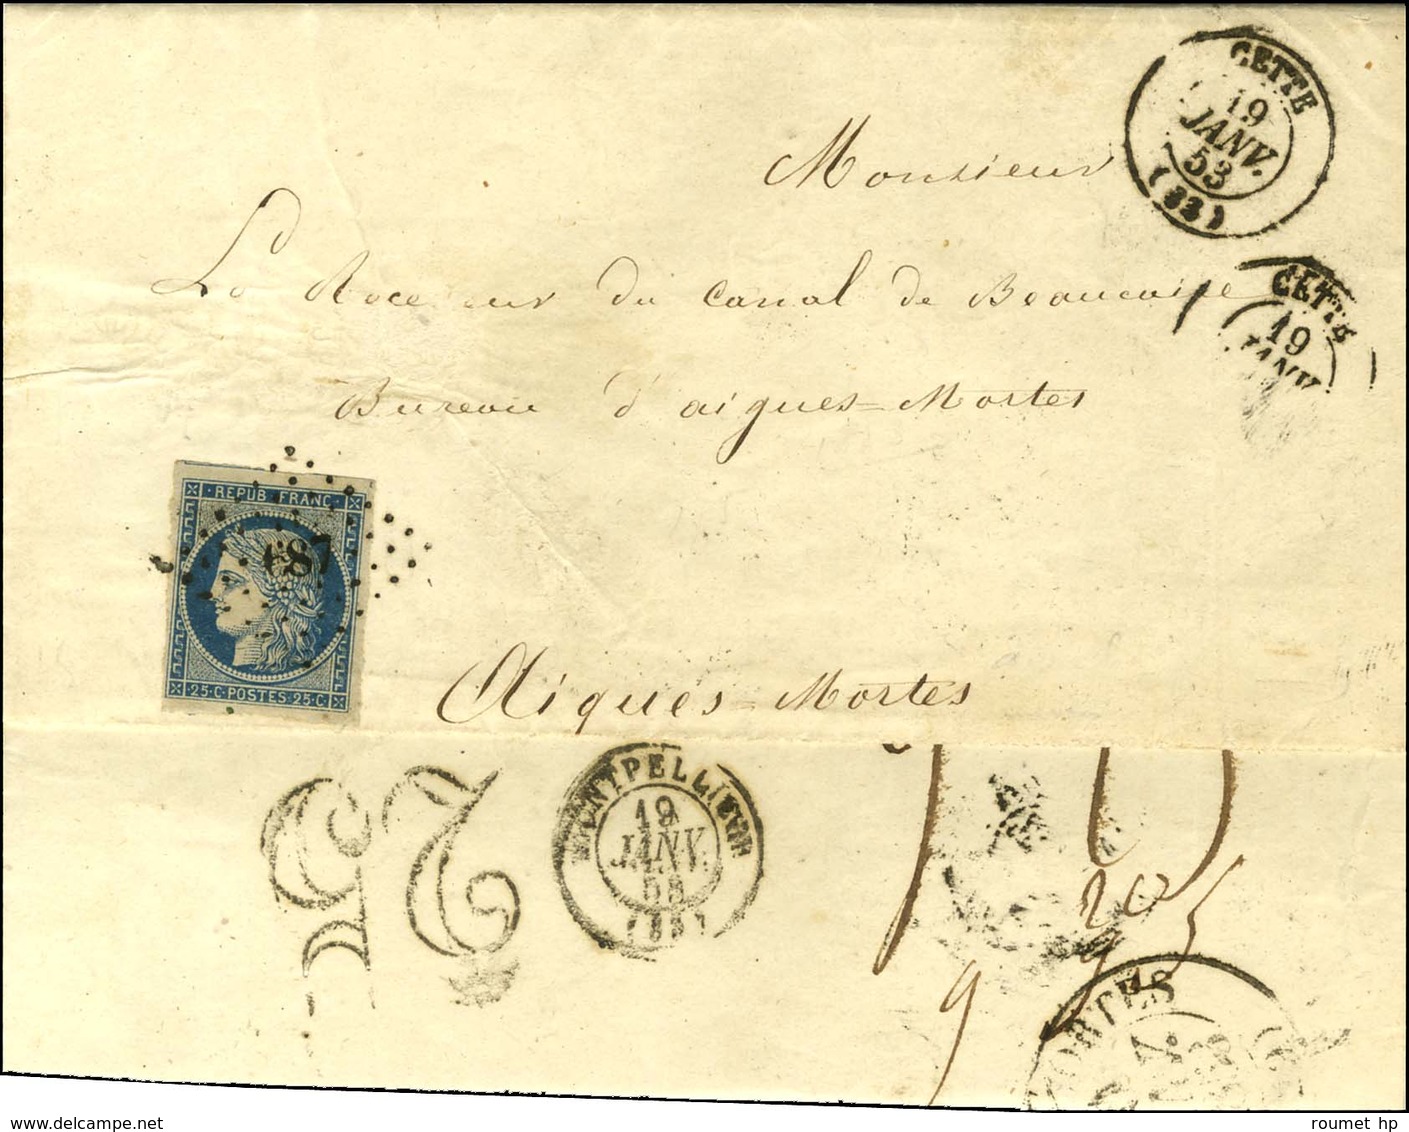 CETTE
19
JANV.
53
(33)
Monsieur
Le Receveur du Canal de Beaucaire
CETTE
19
JANV.
Bureau d'aigues=Mortes
REPUB·FRANC·
687
25·C·POSTES·25·C
Aigues=Mortes
25
MONTPELLIER
19
JANV.
53
(33)
10
20
5
9
9
MORTES
roumet hp